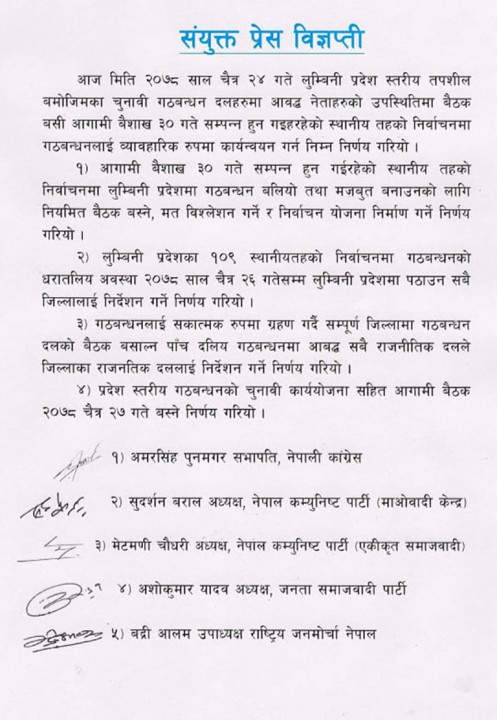 संयुक्त प्रेस विज्ञप्ती
आज मिति २०७८ साल चैत्र २४ गते लुम्बिनी प्रदेश स्तरीय तपशील
बमोजिमका चुनावी गठबन्धन दलहरुमा आबद्ध नेताहरुको उपस्थितिमा बैठक
बसी आगामी बैशाख ३० गते सम्पन्न हुन गइहरहेको स्थानीय तहको निर्वाचनमा
गठबन्धनलाई व्यावहारिक रुपमा कार्यन्वयन गर्न निम्न निर्णय गरियो ।
१) आगामी बैशाख ३० गते सम्पन्न हुन गईरहेको स्थानीय तहको
निर्वाचनमा लुम्बिनी प्रदेशमा गठबन्धन बलियो तथा मजबुत बनाउनको लागि
नियमित बैठक बस्ने, मत विश्लेशन गर्ने र निर्वाचन योजना निर्माण गर्ने निर्णय
गरियो ।
२) लुम्बिनी प्रदेशका १०९ स्थानीयतहको निर्वाचनमा गठबन्धनको
धरातलिय अवस्था २०७८ साल चैत्र २६ गतेसम्म लुम्बिनी प्रदेशमा पठाउन सबै
जिल्लालाई निर्देशन गर्ने निर्णय गरियो ।
३) गठबन्धनलाई सकात्मक रुपमा ग्रहण गर्दै सम्पूर्ण जिल्लामा गठबन्धन
दलको बैठक बसाल्न पाँच दलिय गठबन्धनमा आबद्ध सबै राजनीतिक दलले
जिल्लाका राजनतिक दललाई निर्देशन गर्ने निर्णय गरियो ।
४) प्रदेश स्तरीय गठबन्धनको चुनावी कार्ययोजना सहित आगामी बैठक
२०७८ चैत्र २७ गते बस्ने निर्णय गरियो ।
१) अमरसिंह पुनमगर सभापति, नेपाली कांग्रेस
२) सुदर्शन बराल अध्यक्ष, नेपाल कम्युनिष्ट पार्टी (माओवादी केन्द्र)
३) मेटमणी चौधरी अध्यक्ष, नेपाल कम्युनिष्ट पार्टी (एकीकृत समाजवादी)
४) अशोकुमार यादव अध्यक्ष, जनता समाजवादी पार्टी
५) बद्री आलम उपाध्यक्ष राष्ट्रिय जनमोर्चा नेपाल